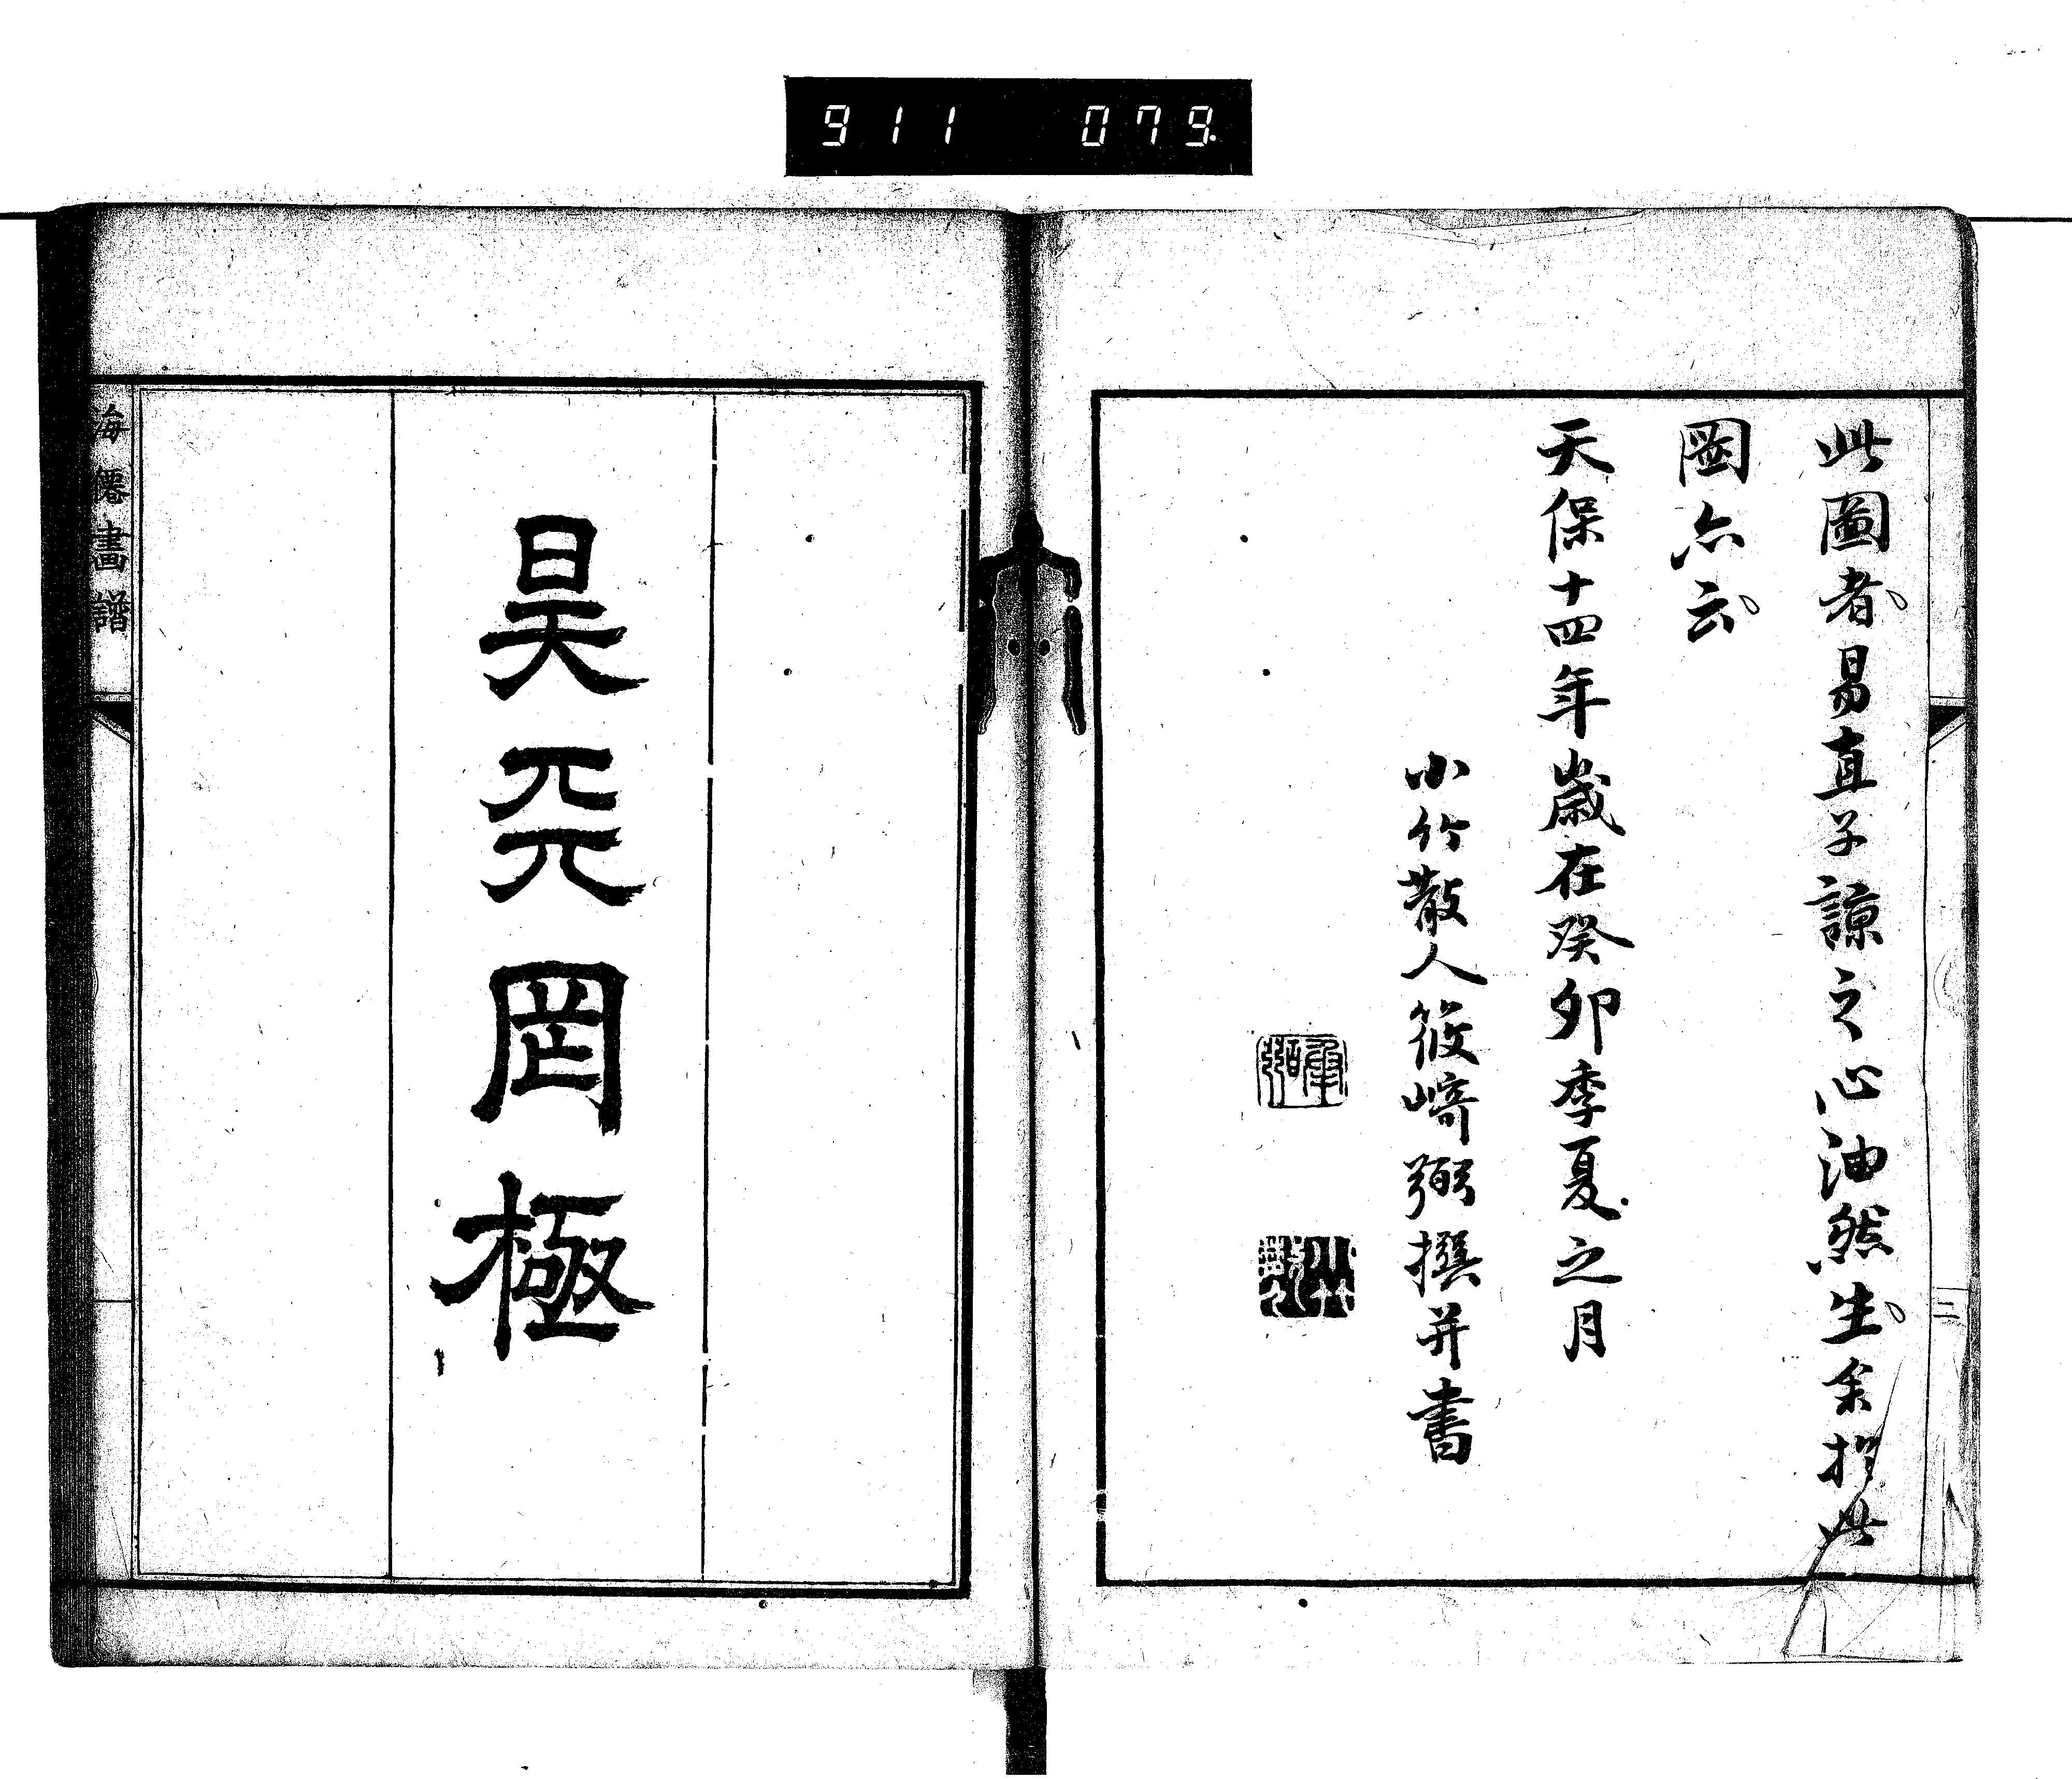 911 079
此圖者易直子諒之心油然生余於此
圖亦云
天保十四年歳在癸卯季夏之月
小竹散人筱崎弼撰并書
三
昊天罔極
海僊畫譜